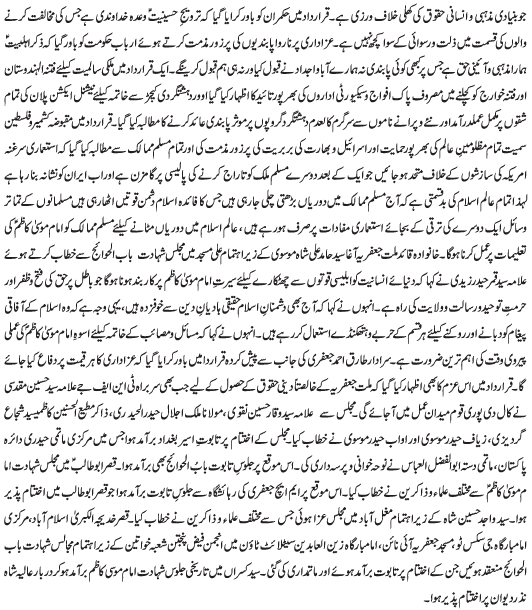 جو بنیادی مذہبی و انسانی حقوق کی کھلی خلاف ورزی ہے۔ قرارداد میں حکمران کو باور کرایا گیا کہ ترویج حسینیتؑ وعدہ خداوندی ہے جس کی مخالفت کرنے
والوں کی قسمت میں ذلت و رسوائی کے سوا کچھ نہیں ہے۔ عزاداری پر ناروا پابندیوں کی پرزور مذمت کرتے ہوئے ارباب حکومت کو باور کیا گیا کہ ذکر اہلبیتؑ
ہمارا مذہبی و آئینی حق ہے جس پر کبھی کوئی پابندی نہ ہمارے آباؤ اجداد نے قبول کیا اور نہ ہی ہم قبول کرینگے۔ ایک قرارداد میں ملکی سالمیت کیلئے فتنہ الہندوستان
اور فتنہ خوارج کو کچلنے میں مصروف پاک افواج و سیکیورٹی اداروں کی بھرپور تائید کا اظہار کیا گیا اور دہشتگردی کیخلاف سے خاتمہ کیلئے نیشنل ایکشن پلان کی تمام
شقوں پر مکمل عملدرآمد اور نئے و پرانے ناموں سے سرگرم کالعدم دہشتگرد گروپوں پر موثر پابندی عائد کرنے کا مطالبہ کیا گیا۔ قرارداد میں مقبوضہ کشمیر و فلسطین
سمیت تمام مظلومین عالم کی بھرپور حمایت اور اسرائیل و بھارت کی بربریت کی پرزور مذمت کی اور تمام مسلم ممالک سے مطالبہ کیا گیا کہ استعماری سرغنہ
امریکہ کی سازشوں کے خلاف متحد ہو جائیں جو ایک کے بعد دوسرے مسلم ملک کو تاراج کرنے کی پالیسی پر گامزن ہے اور اب ایران کو نشانہ بنا رہا ہے
لہذا تمام عالم اسلام کی بدقسمتی ہے کہ آج مسلم ممالک میں دوریاں بڑھتی چلی جا رہی ہیں جس کا فائدہ اسلام دشمن قوتیں اٹھا رہی ہیں مسلمانوں کے تمام تر
وسائل ایک دوسرے کی ترقی کے بجائے استعماری مفادات پر صرف ہو رہے ہیں۔ عالم اسلام میں دوریاں مٹانے کیلئے مسلم ممالک کو امام موسیٰ کاظمؑ کی
تعلیمات پر عمل کرنا ہوگا۔ خانوادہ قائد ملت جعفریہ آغا سید حامد علی شاہ موسوی کے زیر اہتمام علی مسجد میں مجلس شہادت باب الحوائج سے خطاب کرتے ہوئے
علامہ سید قمر حیدر زیدی نے کہا کہ دنیائے انسانیت کو ابلیسی قوتوں سے چھٹکارے کیلئے سیرت امام موسیٰ کاظمؑ پر کاربند ہونا ہوگا جو باطل پر حق کی فتح و ظفر اور
حرمت توحید و رسالت و ولایت کی راہ ہے۔ انہوں نے کہا کہ آج بھی دشمنان اسلام حقیقی ہادیان دین سے خوفزدہ ہیں، یہی وجہ ہے کہ وہ اسلام کے آفاقی
پیغام کو دبانے اور روکنے کیلئے ہر قسم کے حربے و ہتھکنڈے استعمال کر رہے ہیں۔ انہوں نے کہا کہ مسائل و مصائب کے خاتمہ کیلئے اسوہ امام موسیٰ کاظمؑ کی عملی
پیروی وقت کی اہم ترین ضرورت ہے۔ سردار طارق احمد جعفری کی جانب سے پیش کردہ قرارداد میں باور کرایا گیا کہ عزاداری کا ہر قیمت پر دفاع کیا جائے
گا۔ قرارداد میں اس عزم کا بھی اظہار کیا گیا کہ ملت جعفریہ کے خالصتاً دینی حقوق کے حصول کے لیے جب بھی سربراہ ٹی این ایف جے علامہ سید حسین مقدسی
نے کال دی پوری قوم میدان عمل میں آجائے گی۔ مجلس سے علامہ سید وقار حسین نقوی، مولانا ملک اجلال حیدر الحیدری، ذاکر مطیع الحسنین کاظمی، سید شجاع
گردیزی، زیاف حیدر موسوی اور اواب حیدر موسوی نے خطاب کیا۔ مجلس کے اختتام پر تابوت اسیر بغداد برآمد ہوا جس میں مرکزی ماتمی حیدری دائرہ
پاکستان، ماتمی دستہ ابوالفضل العباس نے نوحہ خوانی و پرسہ داری کی۔ اس موقع پر جلوس تابوت باب الحوائج بھی برآمد ہوا۔ قصر ابو طالبؑ میں مجلس شہادت امام
موسیٰ کاظمؑ سے مختلف علماء و ذاکرین نے خطاب کیا۔ اس موقع پر ایم ایچ جعفری کی رہائشگاہ سے جلوس تابوت برآمد ہوا جو قصر ابو طالبؑ میں اختتام پذیر
ہوا۔ سید واجد حسین شاہ کے زیر اہتمام مغل آباد میں مجلس عزا ہوئی جس سے مختلف علماء و ذاکرین نے خطاب کیا۔ قصر خدیجۃ الکبریٰ اسلام آباد، مرکزی
امامبارگاہ جی سکس ٹو مسجد جعفریہ آئی نائن، امامبارگاہ زین العابدین سیٹلائٹ ٹاؤن میں انجمن فیض پنجتن شعبہ خواتین کے زیر اہتمام مجالس شہادت باب
الحوائج منعقد ہوئیں جن کے اختتام پر تابوت برآمد ہوئے اور ماتمداری کی گئی۔ سید کسراں میں تاریخی جلوس شہادت امام موسیٰ کاظم برآمد ہو کر دربار عالیہ شاہ
نذر دیوان پر اختتام پذیر ہوا۔